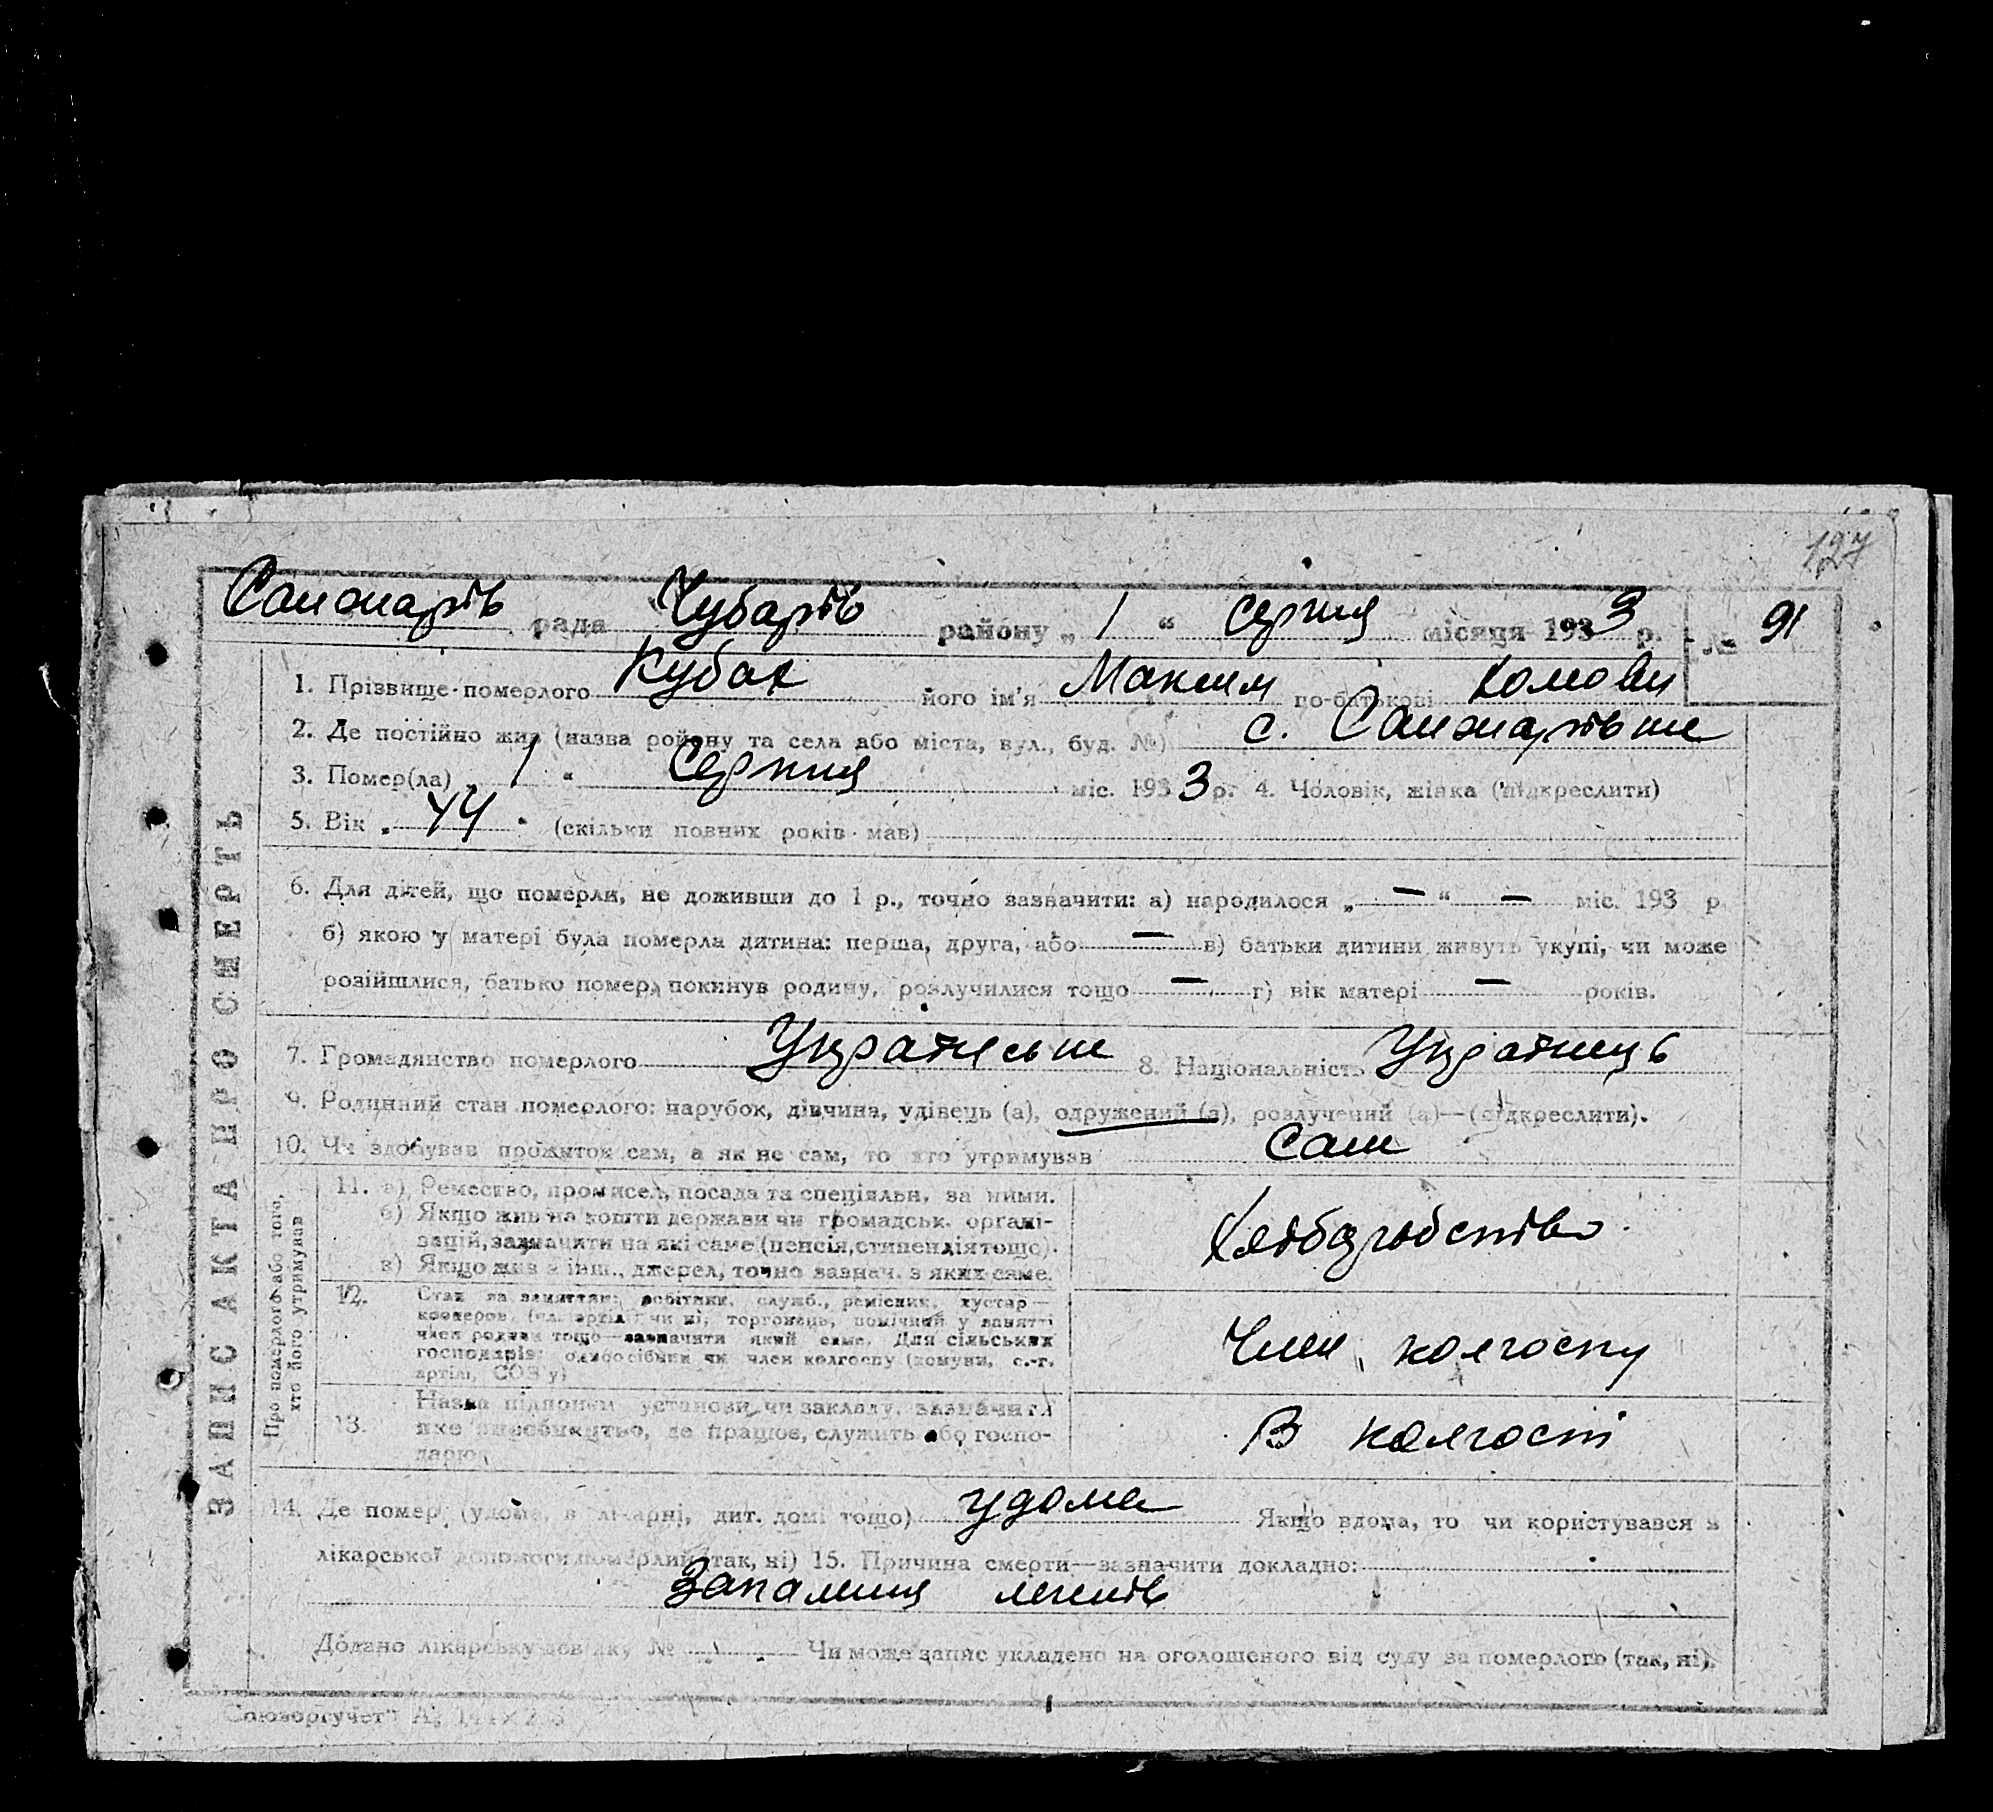 127
Санжарів рада Чубарів району „ 1 “ серпня місяця 1933 р. № 91
1. Прізвище померлого Кубах його ім'я Максим по-батькові Хомови
2. Де постійно жив (назва району та села або міста, вул., буд. №) с. Санжарівни
3. Помер(ла) „ 1 “ Серпня міс. 1933 р. 4. Чоловік, жінка (підкреслити)
5. Вік „ 44 “ (скільки повних років мав)
6. Для дітей, що померли, не доживши до 1 р., точно зазначити: а) народилося „ — “ — міс. 193 р.
б) якою у матері була померла дитина: перша, друга, або — в) батьки дитини живуть укупі, чи може
розійшлися, батько помер, покинув родину, розлучилися тощо — г) вік матері — років.
7. Громадянство померлого Українське 8. Національність Українець
9. Родинний стан померлого: парубок, дівчина, удівець (а), одружений (а), розлучений (а)—(підкреслити).
10. Чи здобував прожиток сам, а як не сам, то хто утримував Сам
ЗАПИС АКТА ПРО СМЕРТЬ
Про померлого або того,
хто його утримував
11. а) Ремество, промисел, посада та спеціяльн. за ними.
б) Якщо жив на кошти держави чи громадськ. органі-
зацій, зазначити на які саме (пенсія, стипендія тощо).
в) Якщо жив з інш., джерел, точно зазнач. з яких саме.
Хліборобство
12. Стан за заняттям: робітник, служб., ремісник, кустар—
коопєров. (чл. артілі) чи ні, торговець, помічний у занятті
член родини тощо—зазначити який саме. Для сільських
господарів: одноосібник чи член колгоспу (комуни, с.-г.
артілі, СОЗ'у)
Член колгоспу
13. Назва підприєм. установи, чи закладу, зазначити
яке виробництво, де працює, служить або госпо-
дарює
В колгоспі
14. Де помер (удома, в лікарні, дит. домі тощо) удома Якщо вдома, то чи користувався з
лікарської допомоги померлий (так, ні) 15. Причина смерти—зазначити докладно:
Запалиня легенів
Додано лікарську довідку № Чи може запис укладено на оголошеного від суду за померлого (так, ні).